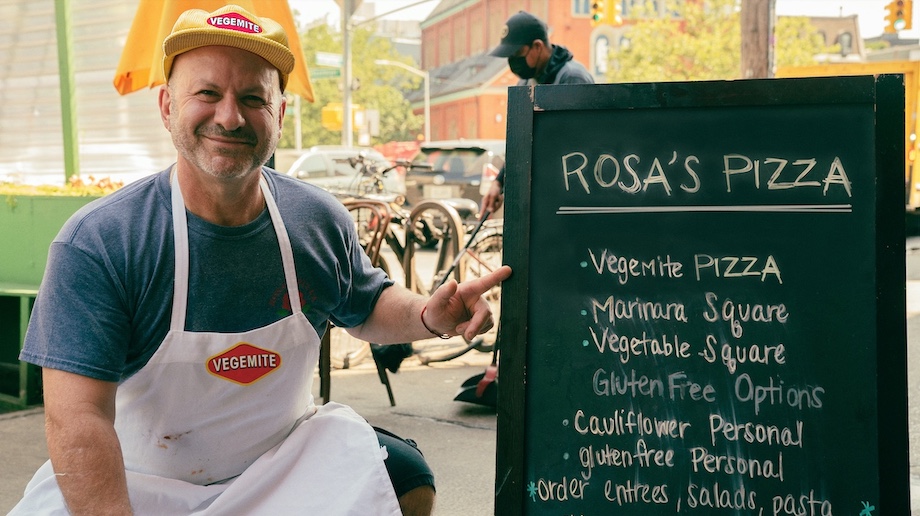 VEGEMITE
VEGEMITE
ROSA'S PIZZA
· Vegemite PIZZA
· Marinara Square
· Vegetable Square
Gluten Free Options
· Cauliflower Personal
· glutenfree Personal
*order entrees, salads, pasta *